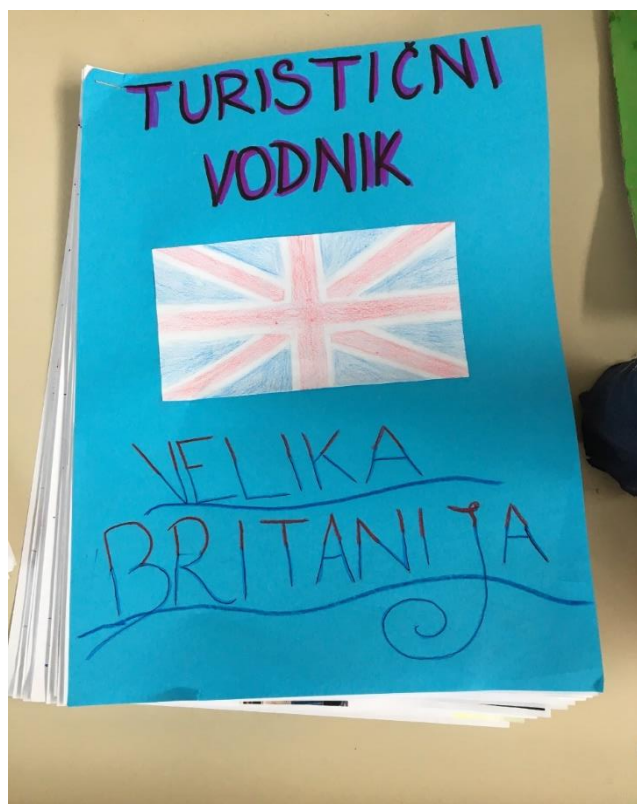 TURISTIČNI
VODNIK
VELIKA
BRITANIJA